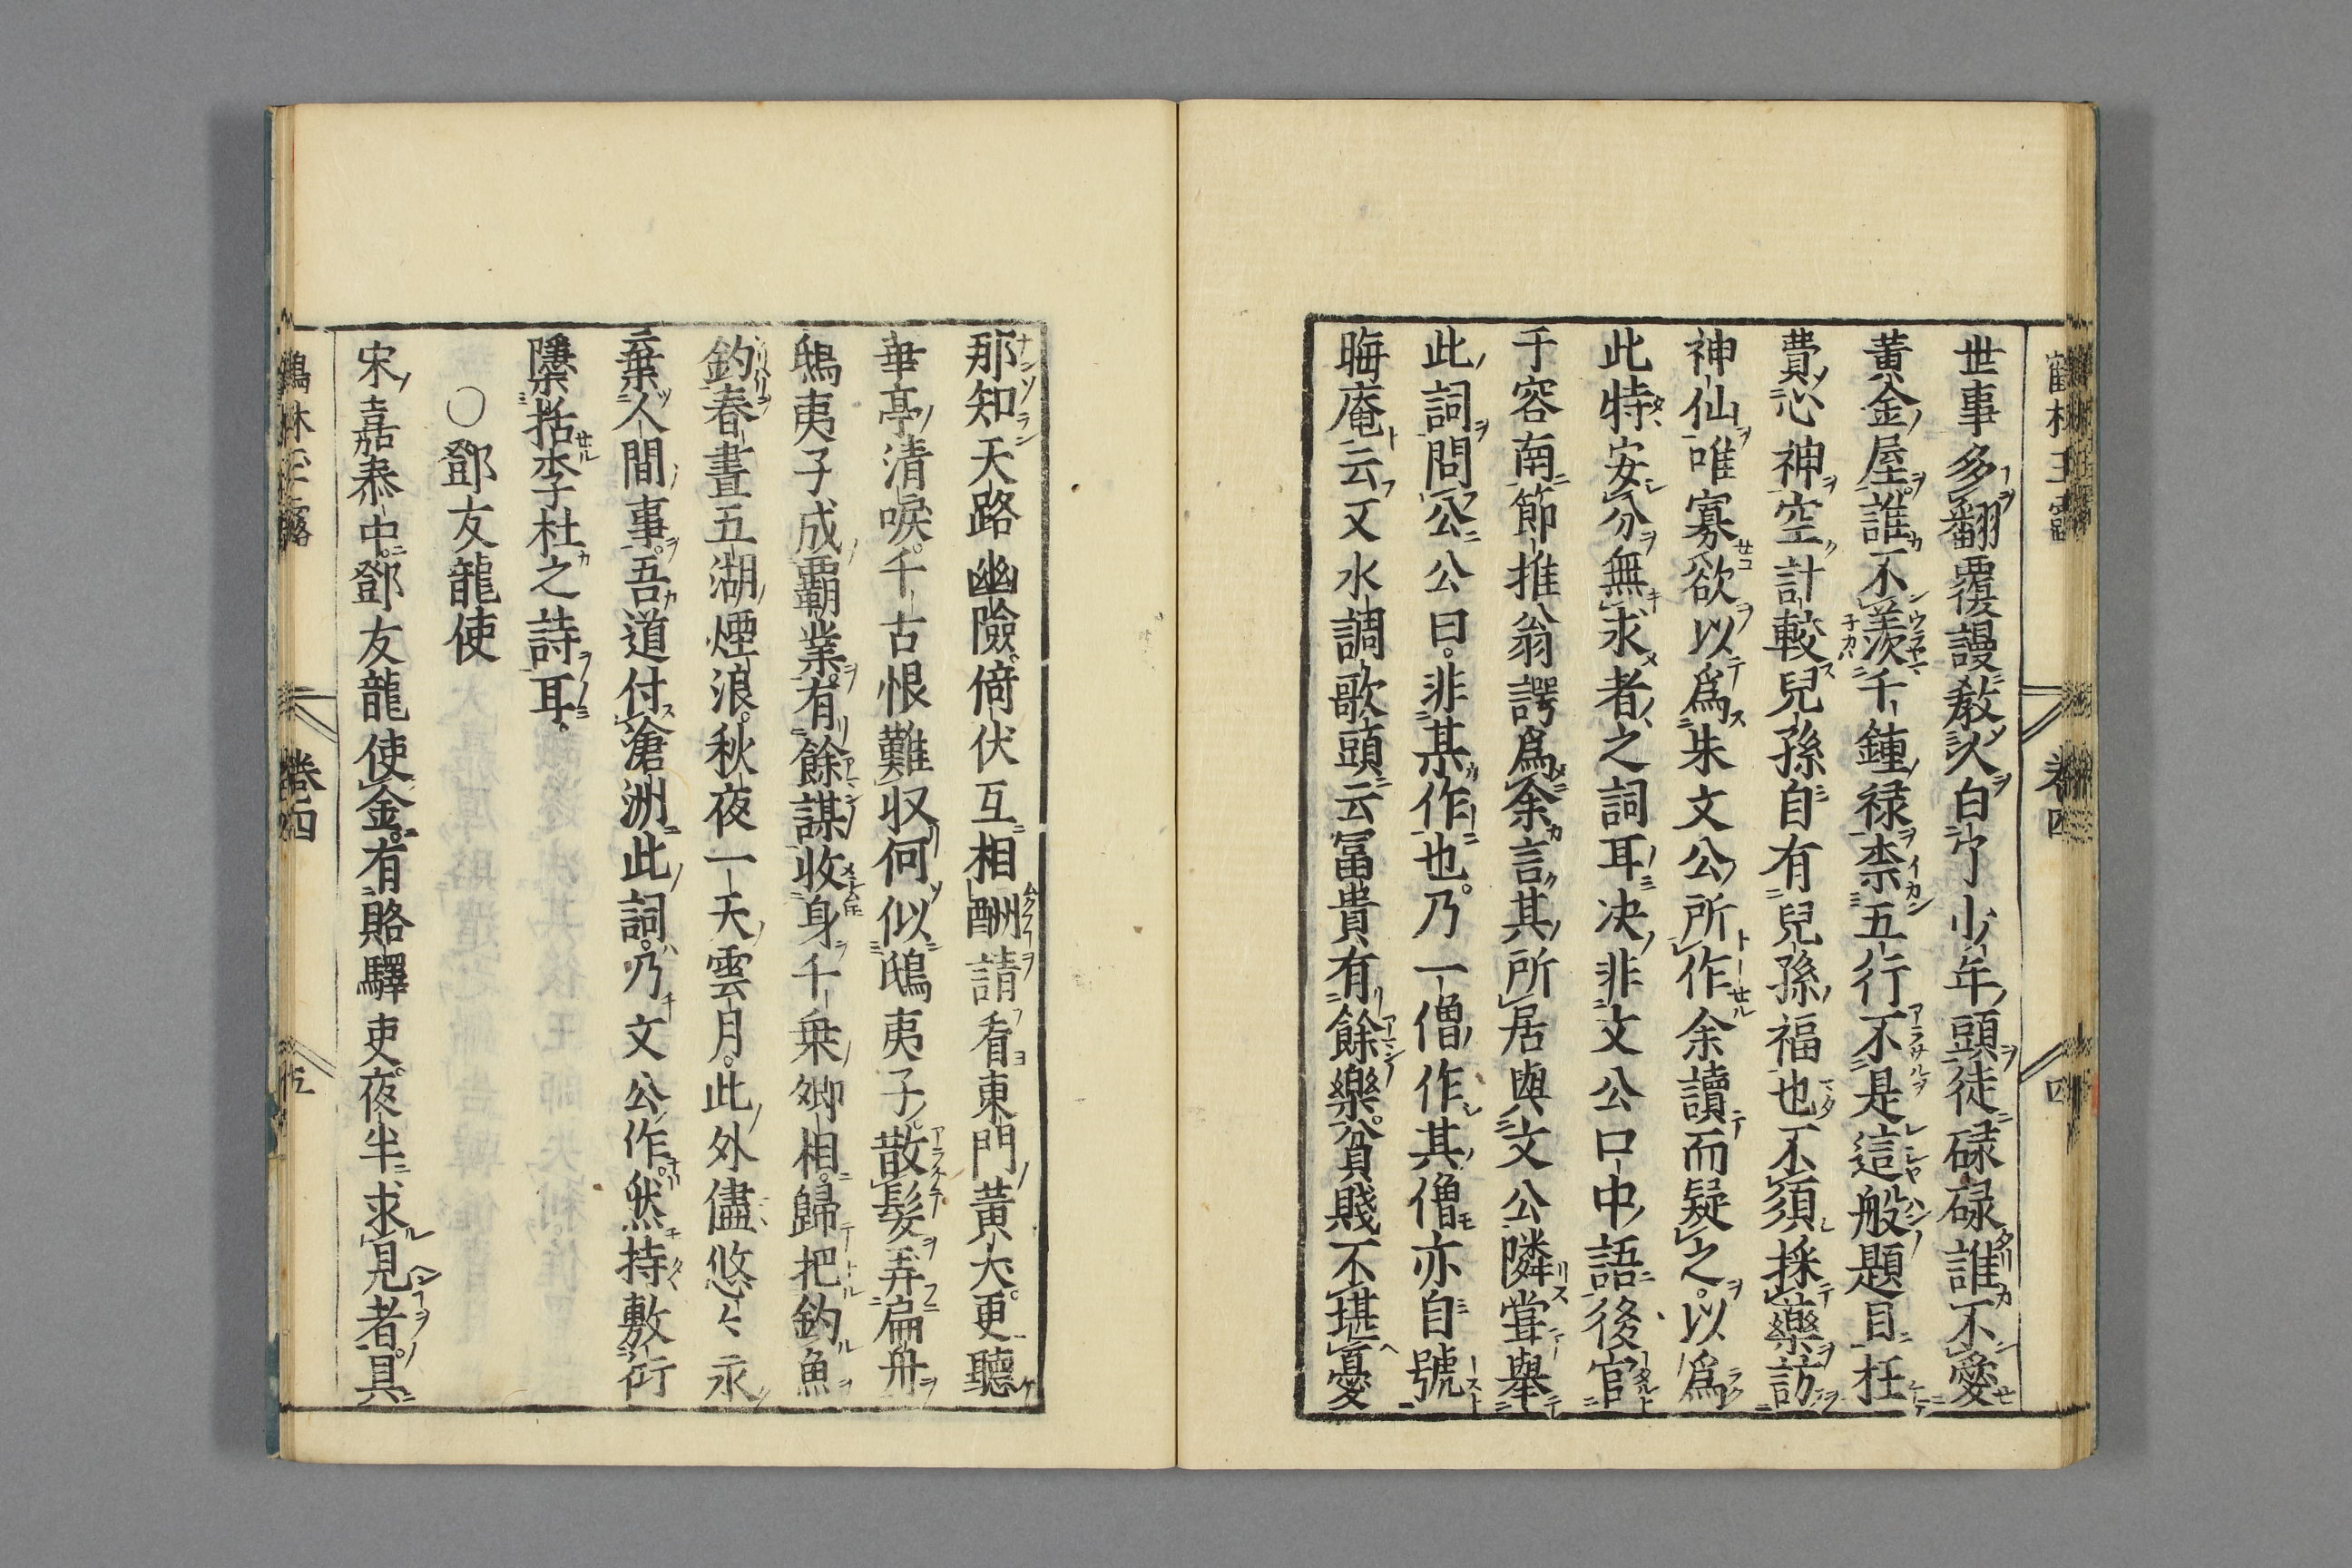 世事多翻覆謾教人白了少年頭徒碌碌誰不愛
黄金屋誰不羨千鍾禄柰五行不是這般題目枉
費心神空計較兒孫自有兒孫福也不須採藥訪
神仙唯寡欲以爲朱文公所作余讀而疑之以爲
此特安分無求者之詞耳决非文公口中語後官
于容南節推翁諤爲余言其所居與文公隣嘗舉
此詞問公公曰非某作也乃一僧作其僧亦自號
晦庵云又水調歌頭云冨貴有餘樂貧賎不堪憂
那知天路幽險倚伏互相酬請看東門黄犬更聽
華亭清唳千古恨難収何似鴟夷子散髮弄扁舟
鴟夷子成覇業有餘謀收身千乗卿相歸把釣魚
釣春晝五湖煙浪秋夜一天雲月此外儘悠〻永
棄人間事吾道付滄洲此詞乃文公作然持敷衍
隱括李杜之詩耳
○鄧友龍使
宋嘉泰中鄧友龍使金有賂驛吏夜半求見者具
鶴林玉露
卷四